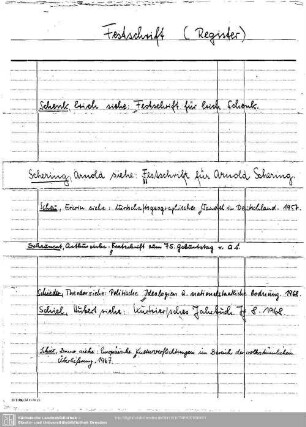 Festschrift (Register)
Schenk, Erich siehe: Festschrift für Erich Schenk.
Schering, Arnold siehe: Festschrift für Arnold Schering.
Erwin siehe: Wirtschaftsgeographischer Wandel in Deutschland. 1957.
Arthur siehe: Festschrift zum 75. Geburtstag v. A. S.
Schieder, Theodor siehe: Politische Ideologien u. nationalstaatliche Ordnung. 1968.
Schiel, Hubert siehe: Kurtrier'sches Jahrbuch 8. 1968.
siehe: Europäische Kulturverflechtungen im Bereich der volkstümlichen
Überlieferung. 1967.